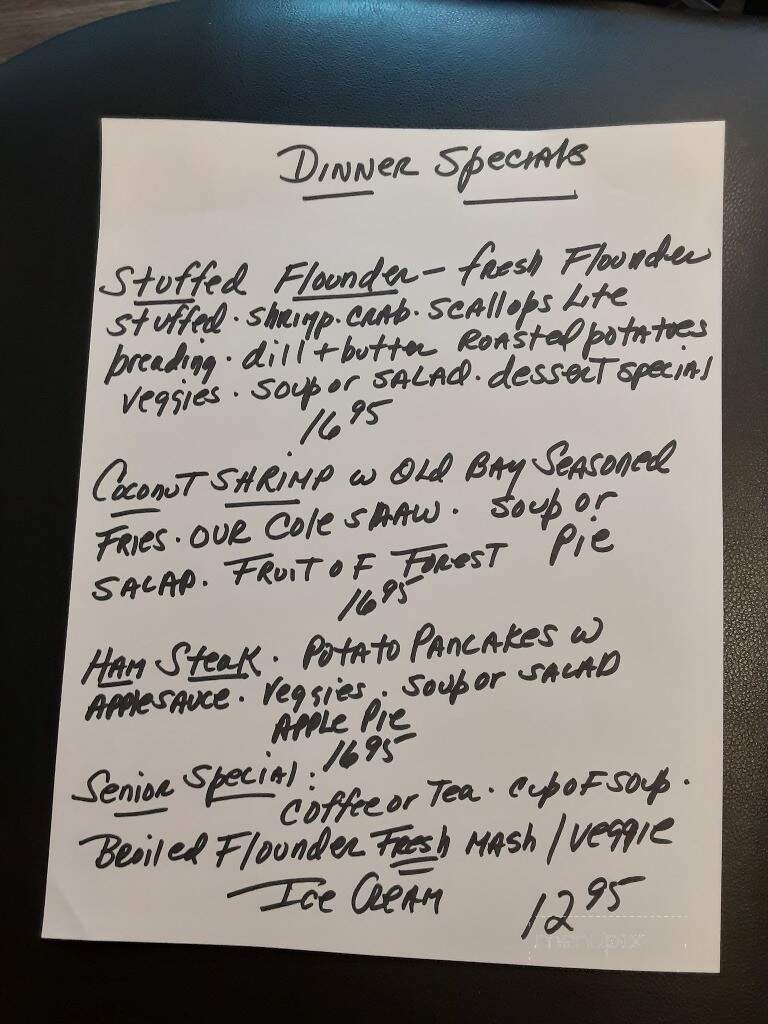 Dinner Specials
Stuffed Flounder - fresh Flounder
stuffed. shrimp. crab. scallops Lite
breading. dill + butter Roasted potatoes
veggies. soup or SALAD. dessert special
16 95
Coconut SHRIMP w OLD BAY Seasoned
Fries. OUR Cole SLAAW. Soup or
SALAD. FRUIT OF FOREST Pie
16 95
HAM Steak. Potato Pancakes w
Applesauce. Veggies. Soup or SALAD
Apple Pie
16 95
Senior Special:
Coffee or Tea. cup of Soup.
Broiled Flounder Fresh MASH / Veggie
Ice Cream
12 95
menupix